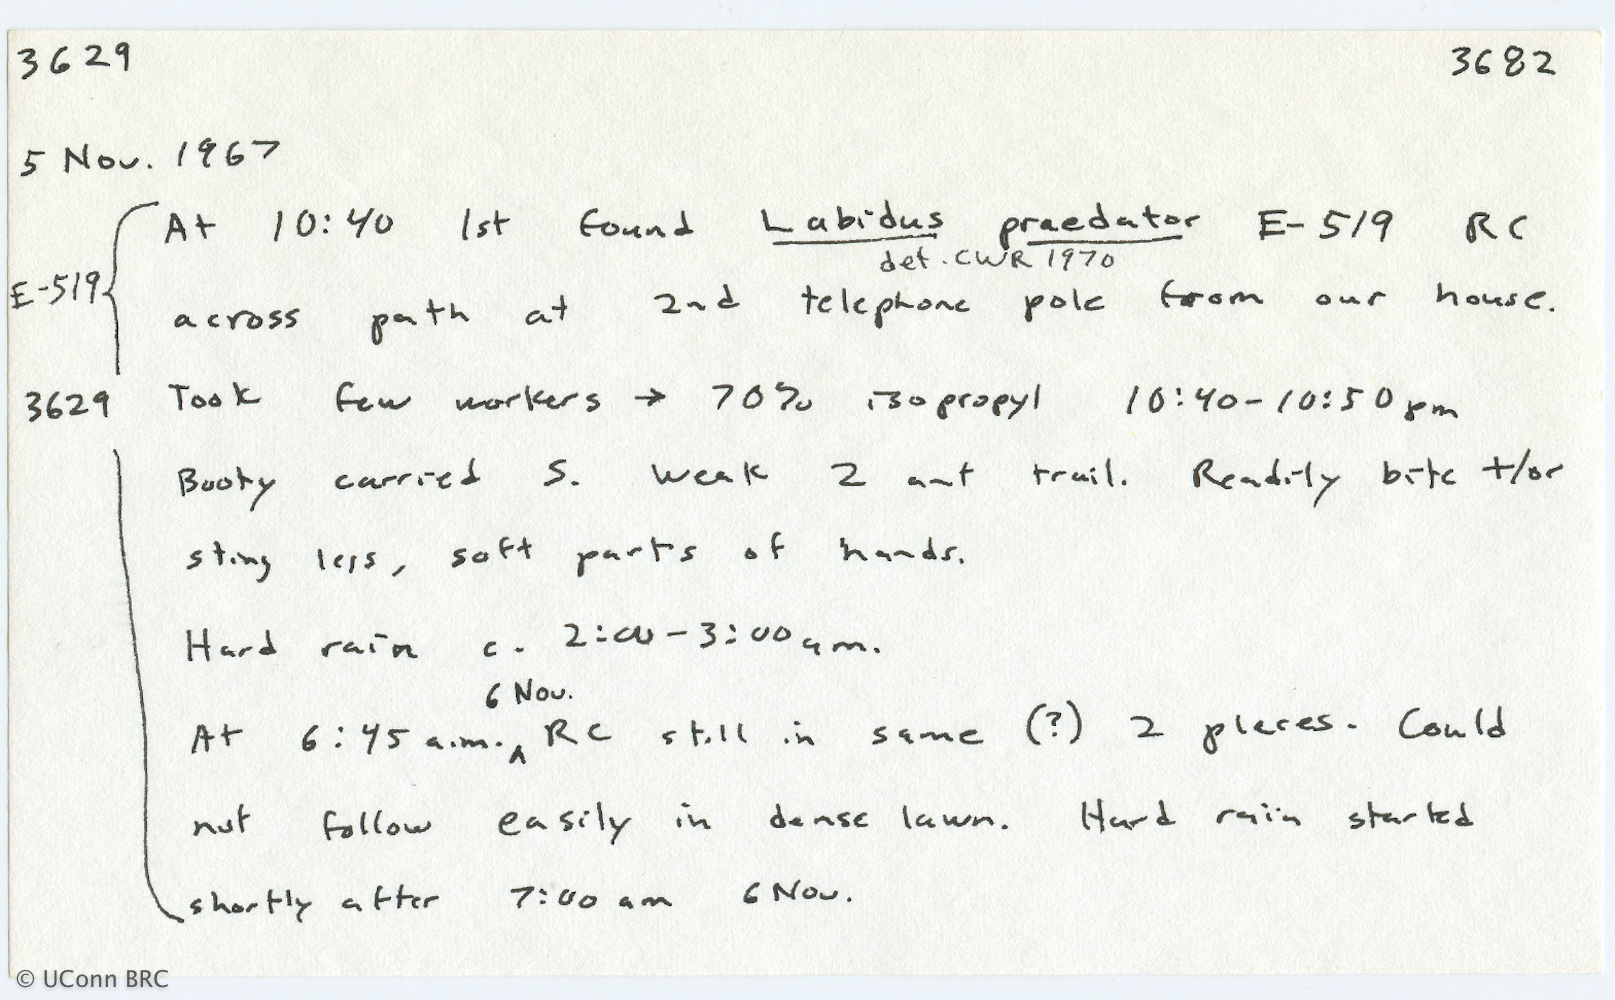 3629 3682
5 Nov. 1967
At 10:40 1st found Labidus praedator E-519 RC
det. CWR 1970
E-519
across path at 2nd telephone pole from our house.
3629 Took few workers → 70% isopropyl 10:40-10:50 pm
Booty carried S. Weak 2 ant trail. Readily bite +/or
sting legs, soft parts of hands.
Hard rain c. 2:00-3:00 am.
6 Nov.
At 6:45 a.m.^ RC still in same (?) 2 places. Could
not follow easily in dense lawn. Hard rain started
shortly after 7:00 am 6 Nov.
© UConn BRC